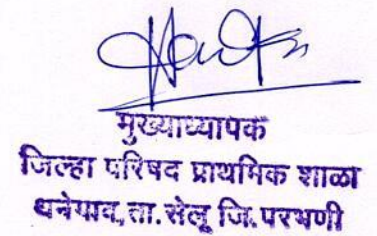 मुख्याध्यापक
जिल्हा परिषद प्राथमिक शाळा
धनेगाव, ता. सेलू जि. परभणी